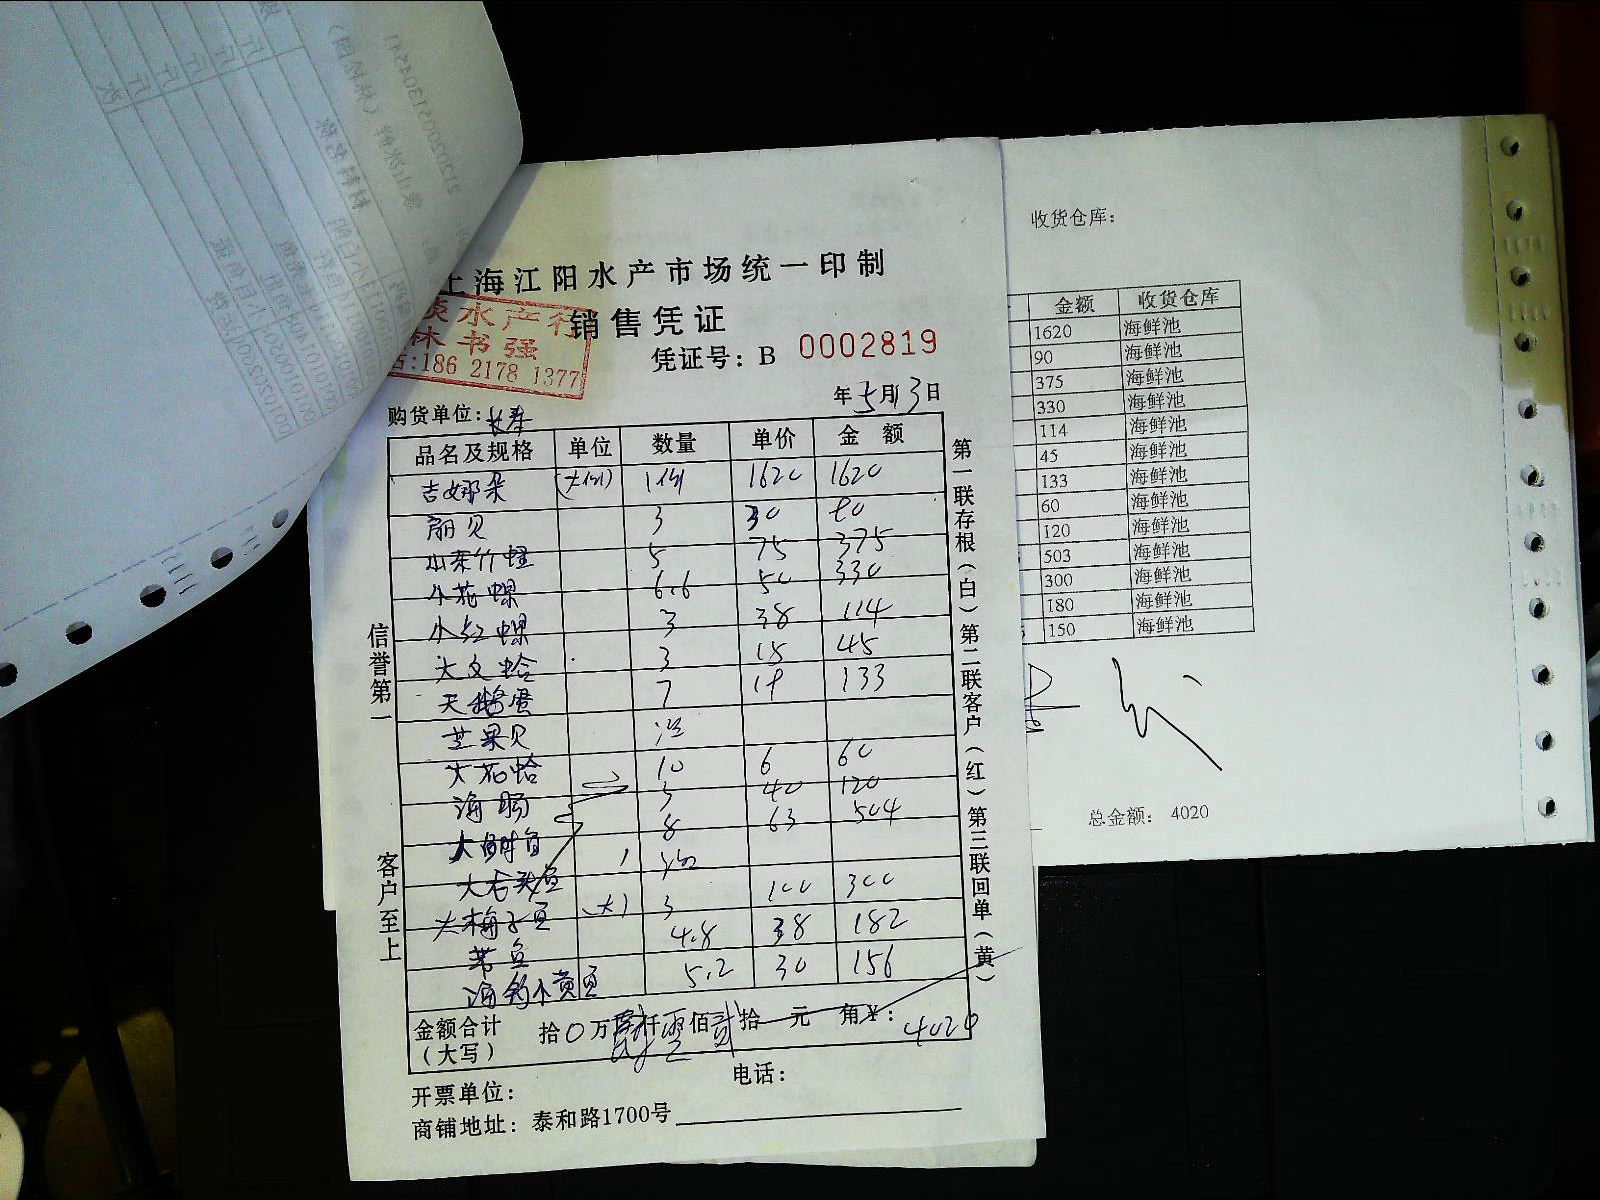 上海江阳水产市场统一印制
销售凭证
水产行
林书强
186 2178 1377
凭证号：B 0002819
年5月13日
购货单位：长寿
品名及规格 单位 数量 单价 金 额
吉娜朵 (大个) 1个 1620 1620
扇贝 3 30 90
竹蛏 5 75 375
小花螺 6.6 50 330
小红螺 3 38 114
大文蛤 3 15 45
天鹅蛋 7 19 133
芒果贝 没
大花蛤 10 6 60
海肠 3 40 120
8 63 504
大石头鱼
大梅子鱼 (大) 3 100 300
带鱼 4.8 38 182
海钓小黄鱼 5.2 30 156
金额合计
（大写） 拾0万肆仟零佰贰拾 元 角 ¥： 4020
开票单位：
电话：
商铺地址：泰和路1700号
信誉第一
客户至上
第一联存根（白）第二联客户（红）第三联回单（黄）
收货仓库：
金额 收货仓库
1620 海鲜池
90 海鲜池
375 海鲜池
330 海鲜池
114 海鲜池
45 海鲜池
133 海鲜池
60 海鲜池
120 海鲜池
503 海鲜池
300 海鲜池
180 海鲜池
150 海鲜池
总金额： 4020